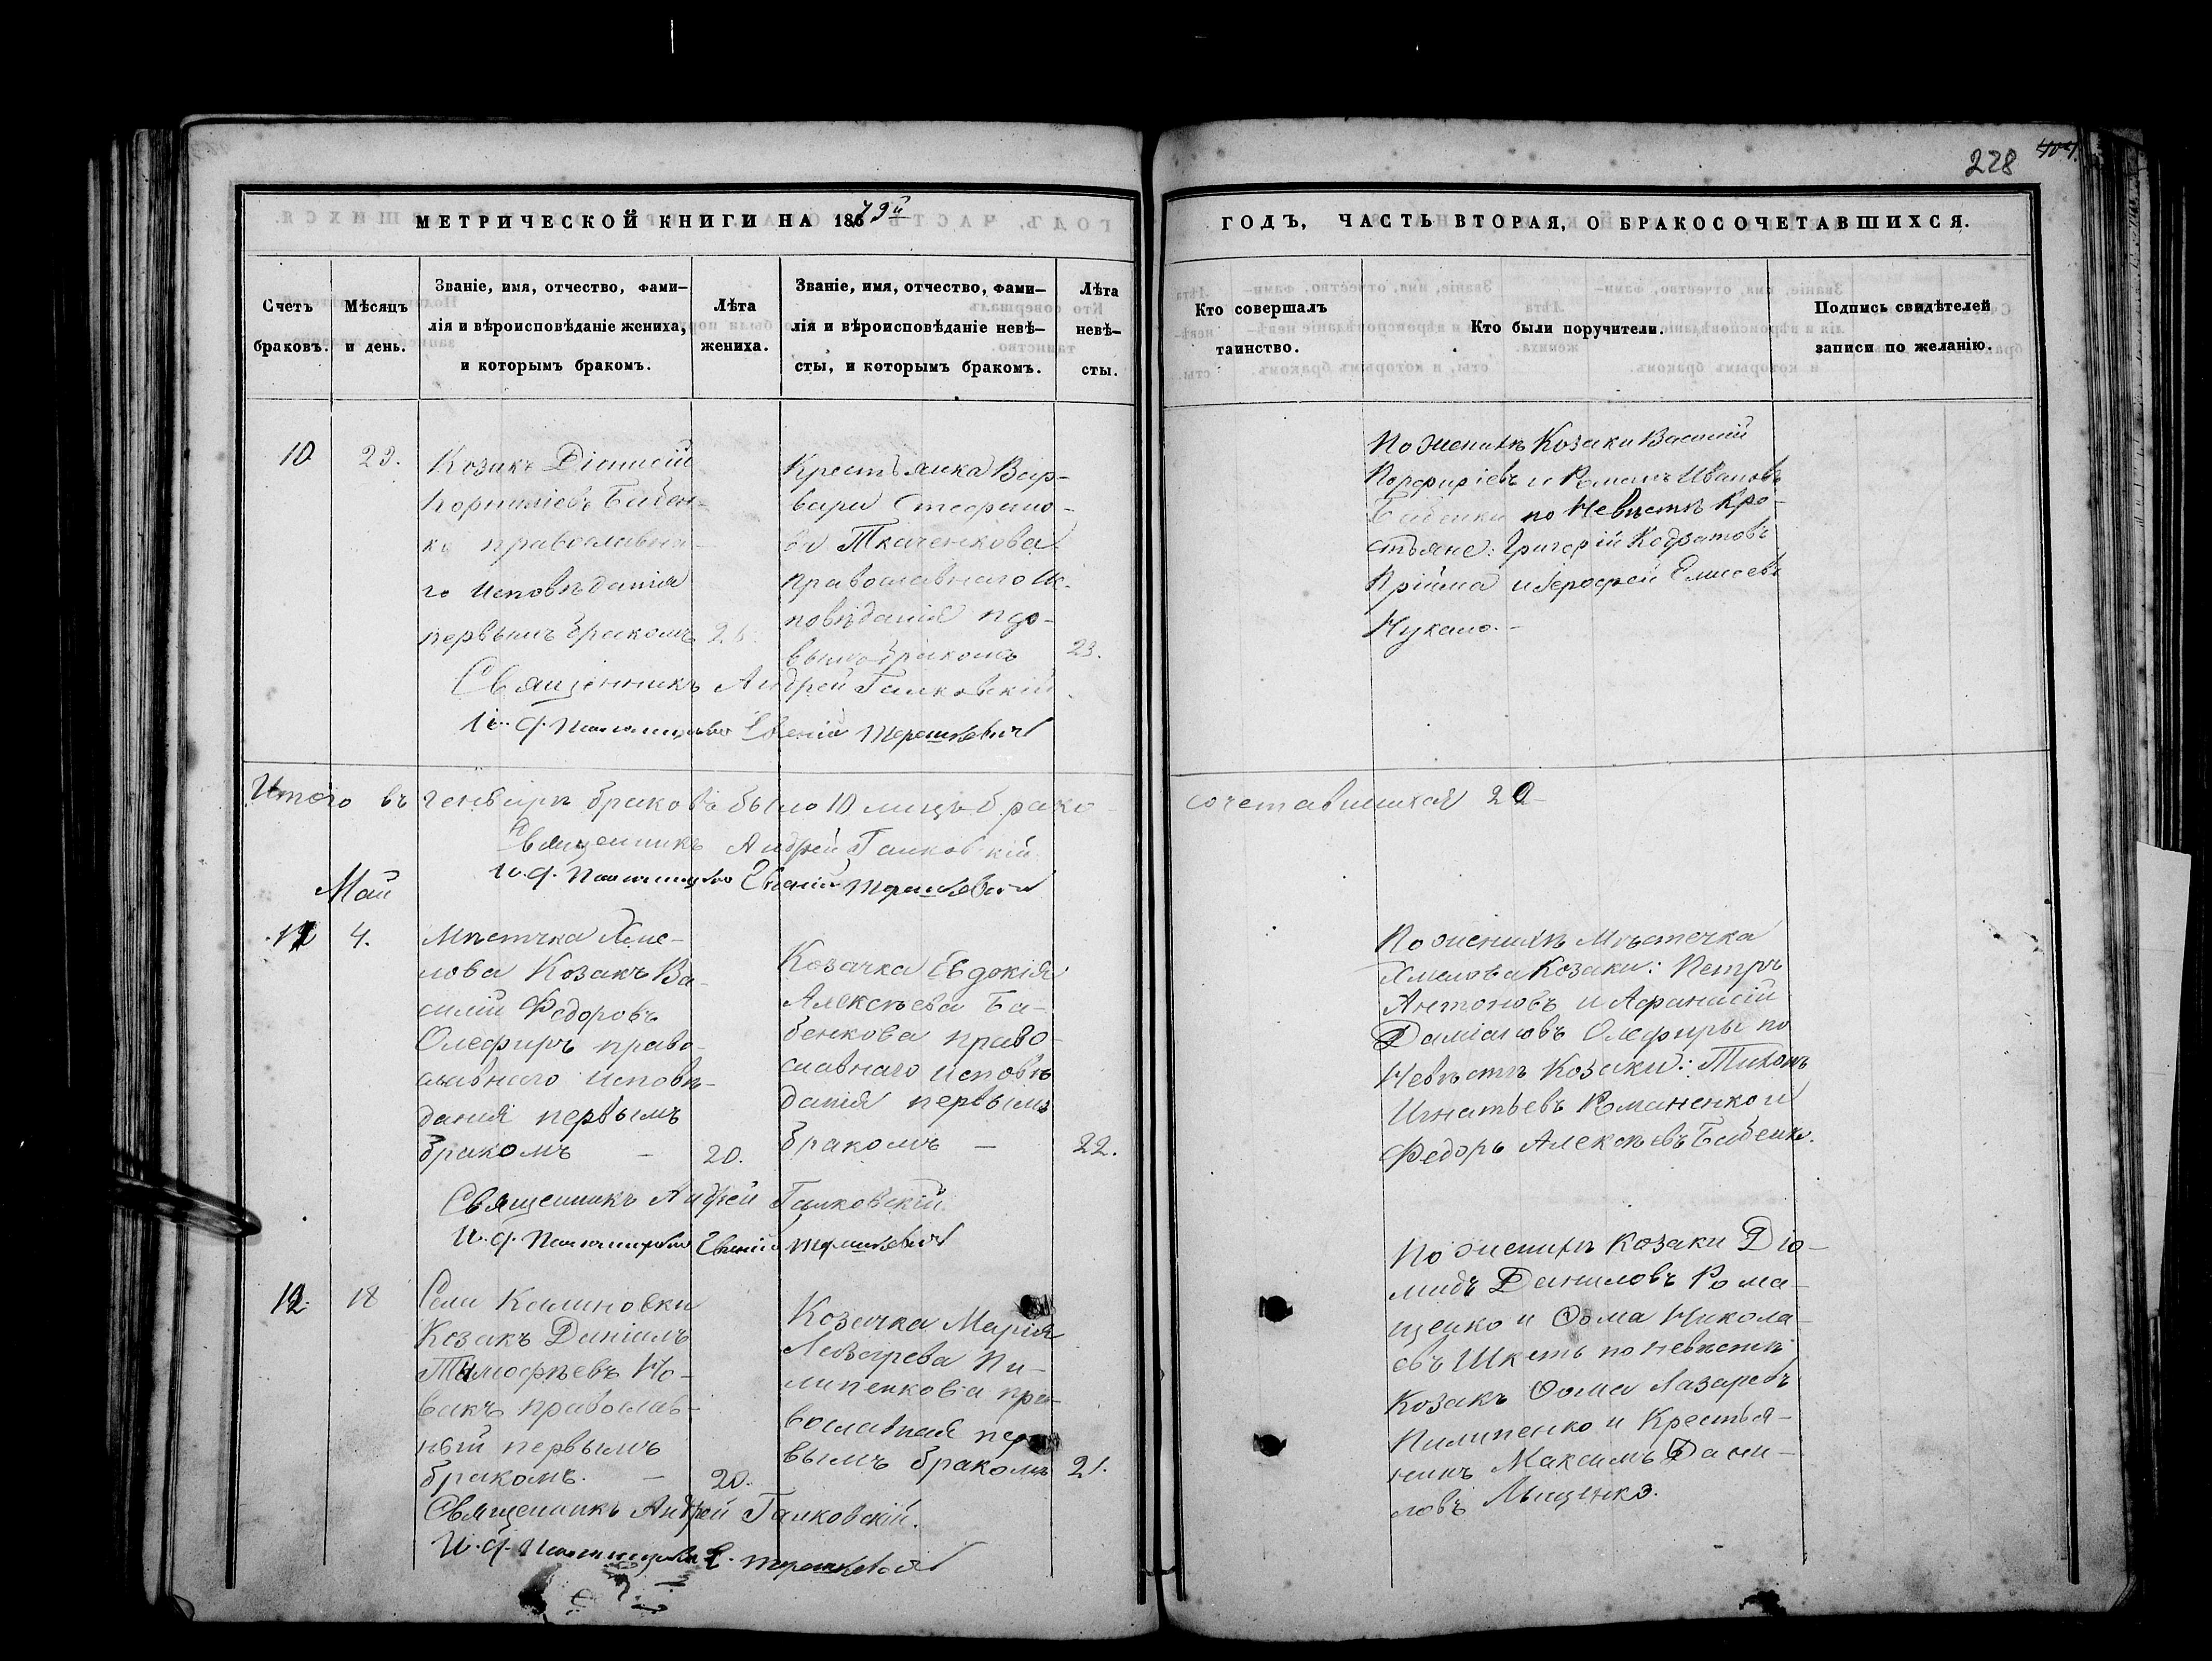 228
МЕТРИЧЕСКОЙ КНИГИ НА 1879й
ГОДЪ, ЧАСТЬ ВТОРАЯ, О БРАКОСОЧЕТАВШИХСЯ.
Счетъ
браковъ.
Мѣсяцъ
и день.
Званіе, имя, отчество, фами-
лія и вѣроисповѣданіе жениха,
и которымъ бракомъ.
Лѣта
жениха.
Званіе, имя, отчество, фами-
лія и вѣроисповѣданіе невѣ-
сты, и которымъ бракомъ.
Лѣта
невѣ-
сты.
Кто совершалъ
таинство.
Кто были поручители.
Подпись свидѣтелей
записи по желанію.
10
Козакъ Діонисій
Корниліевъ Бабен-
ко православна-
го исповѣданія
первымъ бракомъ
Крестьянка Вар-
вара Стефано-
ва Ткаченкова
православнаго Ис-
повѣданія
бракомъ
23.
По Женихѣ Козаки Василий
Порфиріевъ и Романъ Ивановъ
Бабенки по Невѣстѣ Кре-
стьяне: Григорій
Прійма и Ерофей Елисеевъ
Священникъ Андрей Галковскій
И. д. Псаломщика Евгеній
Итого въ генварѣ браковъ было 10 лицъ брако-
сочетавшихся 20
Священникъ Андрей Галковскій
И. д. Псаломщика Евгеній
Май
11
4.
Мѣстечка Хме-
лова Козакъ Ва-
силій Федоровъ
Олефиръ право-
славнаго исповѣ-
данія первымъ
бракомъ —
20.
Козачка Евдокія
Алексѣева Ба-
бенкова право-
славнаго исповѣ
данія первымъ
бракомъ —
22.
По женихѣ Мѣстечка
Хмелова Козаки: Петръ
Антоновъ и Афанасій
Даміановъ Олефиры по
Невѣстѣ Козаки: Тихонъ
Игнатьевъ Романенко и
Федоръ Алексѣевъ Бабенко.
Священникъ Андрей Галковскій
И. д. Псаломщика Евгеній
12.
18
Села Калиновки
Козакъ Даніилъ
Тимофѣевъ Но-
вакъ православ-
ный первымъ
бракомъ. —
20.
Козачка Марія
Лазарева Пи-
липенкова пра-
вославная пер-
вымъ бракомъ
21.
По женихѣ Козаки Діо-
мидъ Даниловъ Рома-
щенко и Ѳома Никола-
евъ по невѣстѣ
Козакъ Ѳома Лазаревъ
Пилипенко и Крестья-
нинъ Максимъ Дани-
ловъ Мищенко.
Священникъ Андрей Галковскій.
И. д. Псаломщика Е.